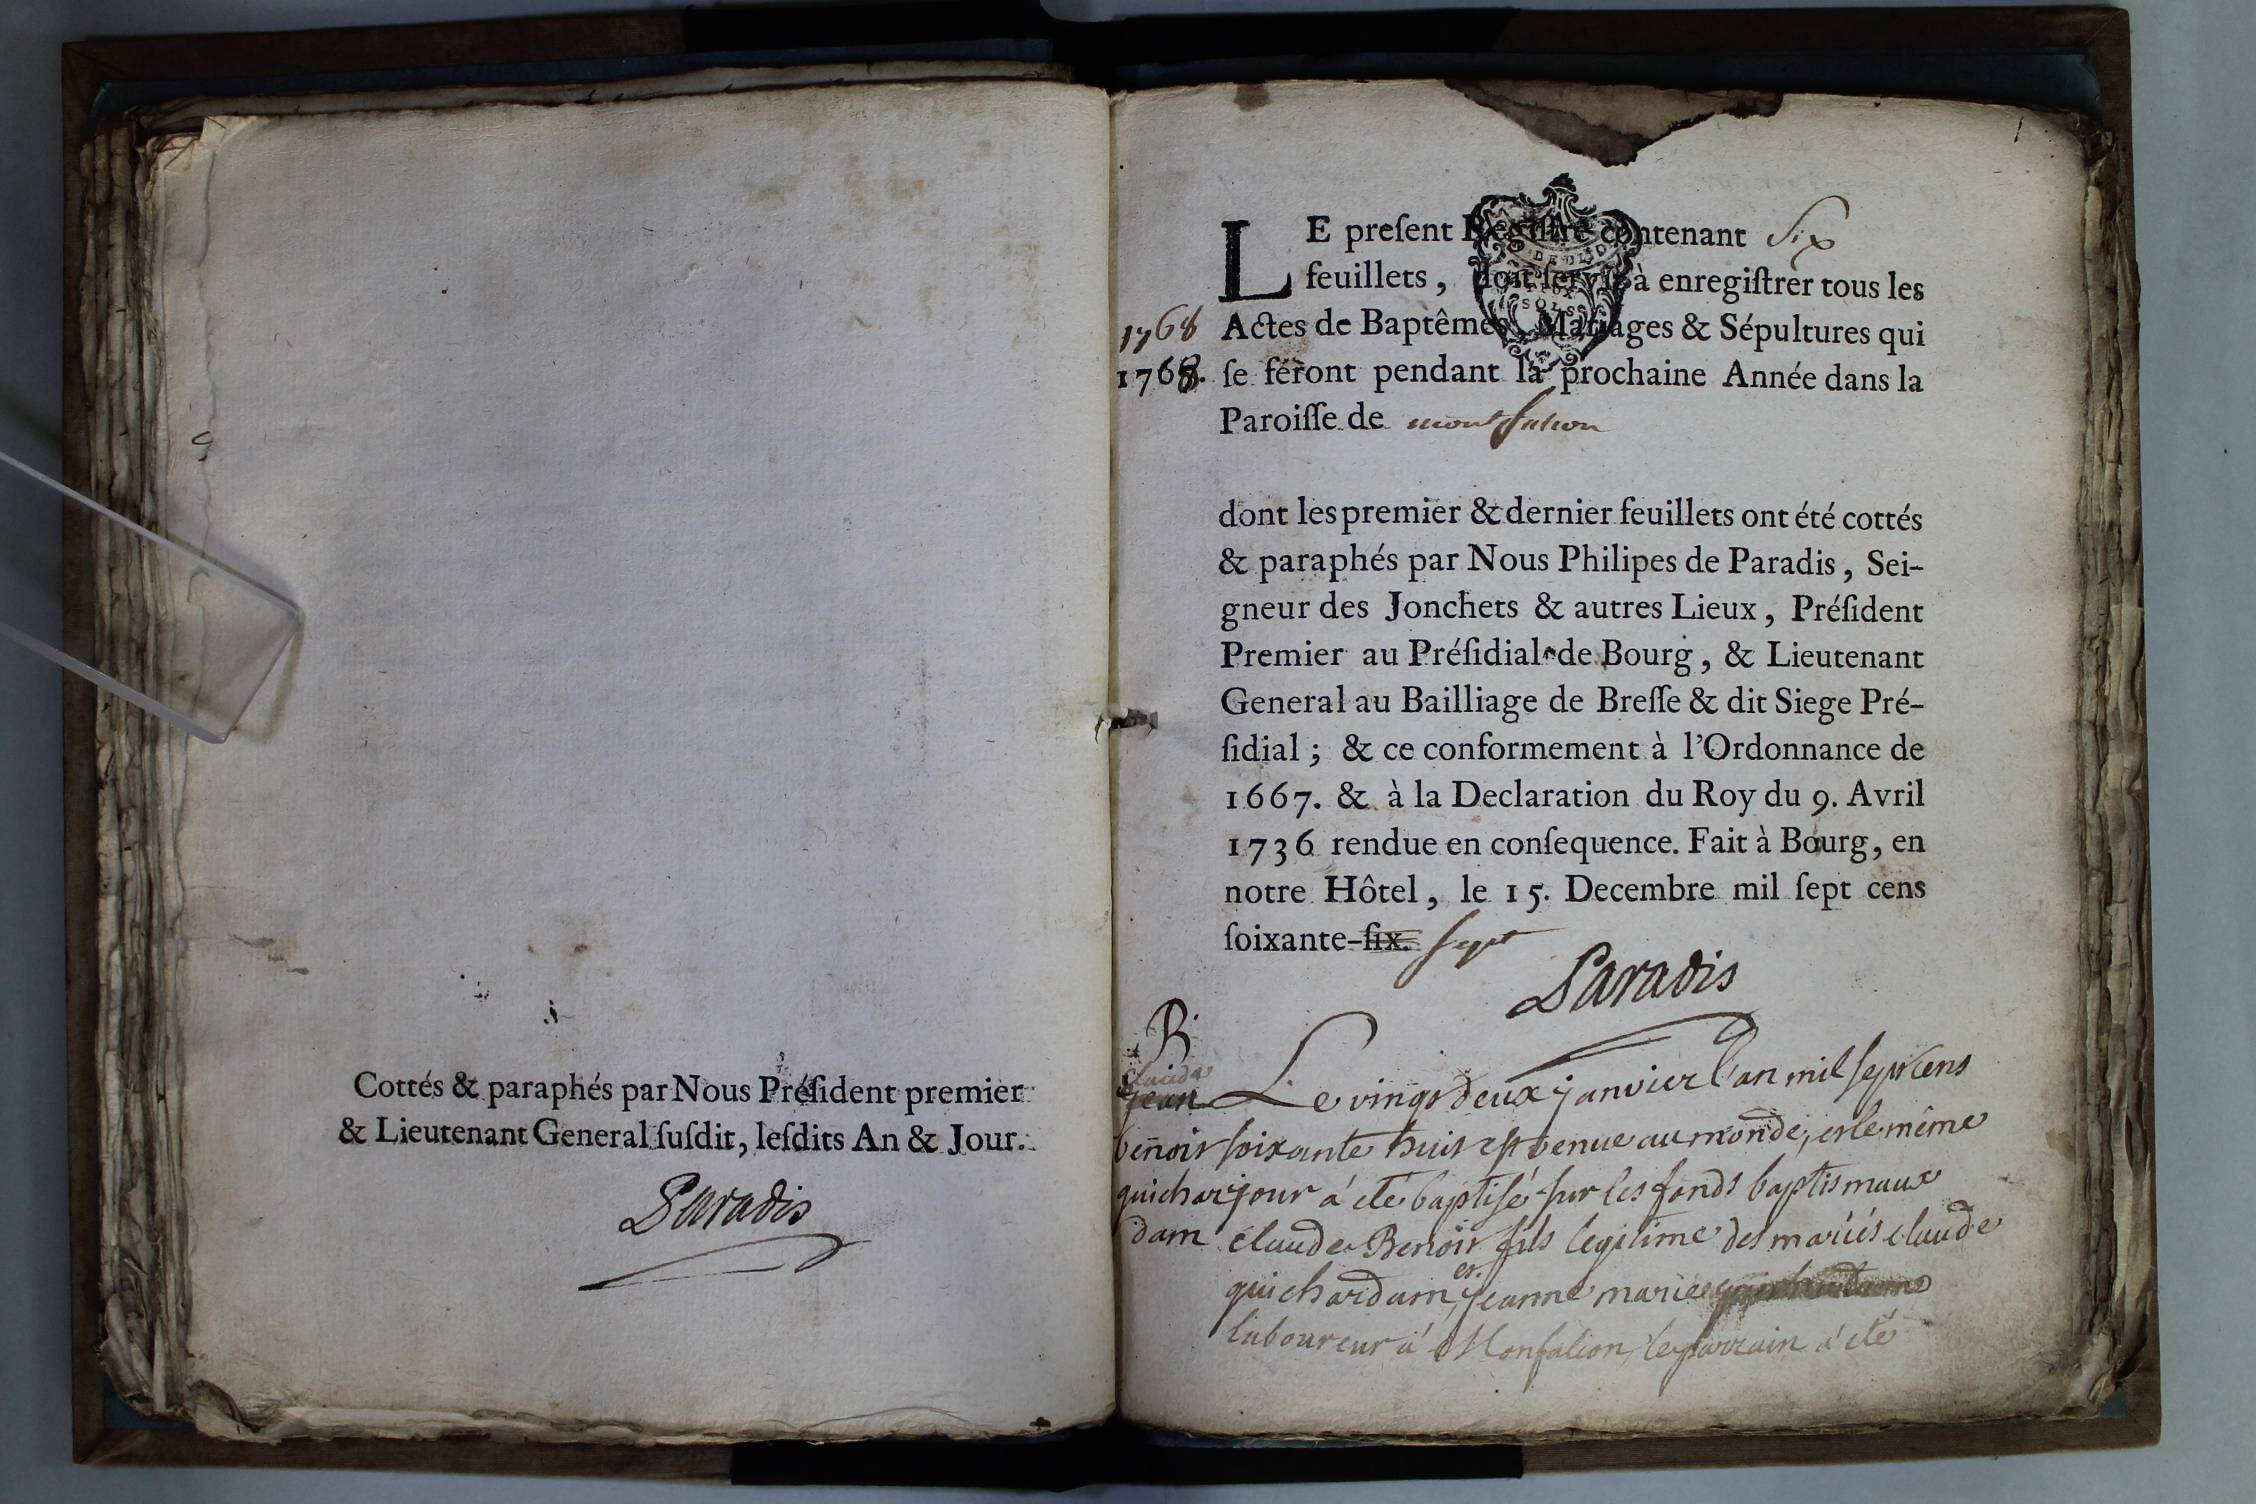 Cottés & paraphés par Nous Préſident premier
& Lieutenant General ſuſdit, leſdits An & Jour.
Paradis
1
LE preſent Regiſtre contenant Six
feuillets, doit ſervir à enregiſtrer tous les
1768 Actes de Baptêmes, Mariages & Sépultures qui
1768. ſe féront pendant la prochaine Année dans la
Paroiſſe de montfalcon
dont les premier & dernier feuillets ont été cottés
& paraphés par Nous Philipes de Paradis, Sei-
gneur des Jonchets & autres Lieux, Préſident
Premier au Préſidial de Bourg, & Lieutenant
General au Bailliage de Breſſe & dit Siege Pré-
ſidial; & ce conformement à l'Ordonnance de
1667. & à la Declaration du Roy du 9. Avril
1736 rendue en conſequence. Fait à Bourg, en
notre Hôtel, le 15. Decembre mil ſept cens
ſoixante-ſix. sept
Paradis
B.
claude
jean
benoit
guichar
dam
Le vingt deux janvier l'an mil sept cens
soixante huit est venue au monde, et le même
jour á eté baptisé sur les fonds baptismaux
claude Benoit fils legitime des mariés claude
guichardam, et jeanne marie
laboureur á Monfalcon, le parrain á eté